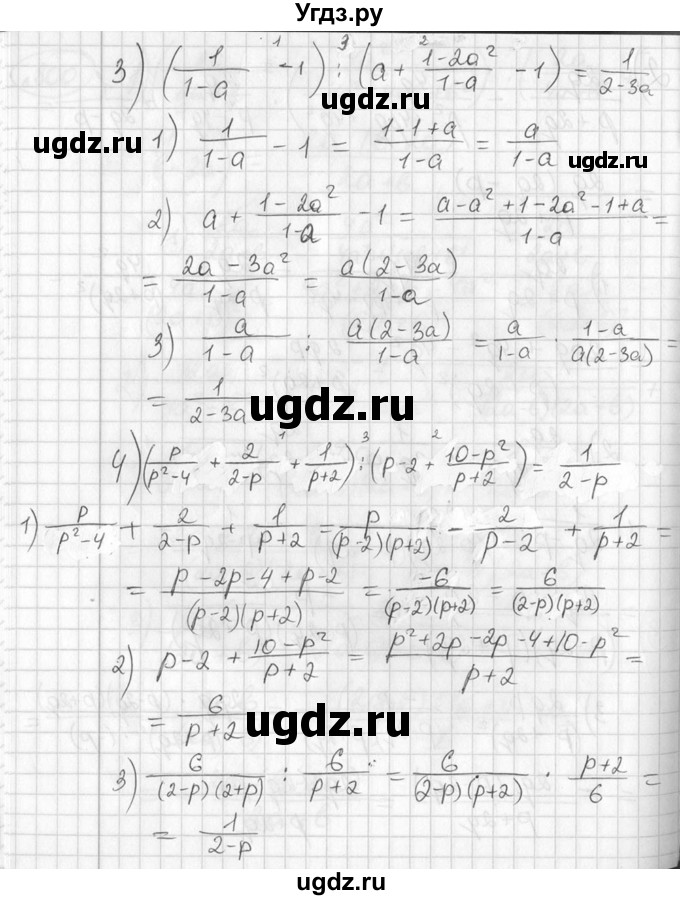 Угдз.ру
3) (1/(1-a) - 1) : (a + (1-2a²)/(1-a) - 1) = 1/(2-3a)
ugdz.ru
ugdz.ru
ugdz.ru
1) 1/(1-a) - 1 = (1-1+a)/(1-a) = a/(1-a)
2) a + (1-2a²)/(1-a) - 1 = (a-a²+1-2a²-1+a)/(1-a) =
= (2a-3a²)/(1-a) = a(2-3a)/(1-a)
ugdz.ru
3) a/(1-a) : a(2-3a)/(1-a) = a/(1-a) · (1-a)/(a(2-3a)) =
= 1/(2-3a)
ugdz.ru
4) (p/(p²-4) + 2/(2-p) + 1/(p+2)) : (p-2 + (10-p²)/(p+2)) = 1/(2-p)
1) p/(p²-4) + 2/(2-p) + 1/(p+2) = p/((p-2)(p+2)) - 2/(p-2) + 1/(p+2) =
ugdz.ru
= (p-2p-4+p-2)/((p-2)(p+2)) = -6/((p-2)(p+2)) = 6/((2-p)(p+2))
2) p-2 + (10-p²)/(p+2) = (p²+2p-2p-4+10-p²)/(p+2) =
= 6/(p+2)
ugdz.ru
3) 6/((2-p)(2+p)) : 6/(p+2) = 6/((2-p)(p+2)) · (p+2)/6 =
= 1/(2-p)
ugdz.ru
ugdz.ru